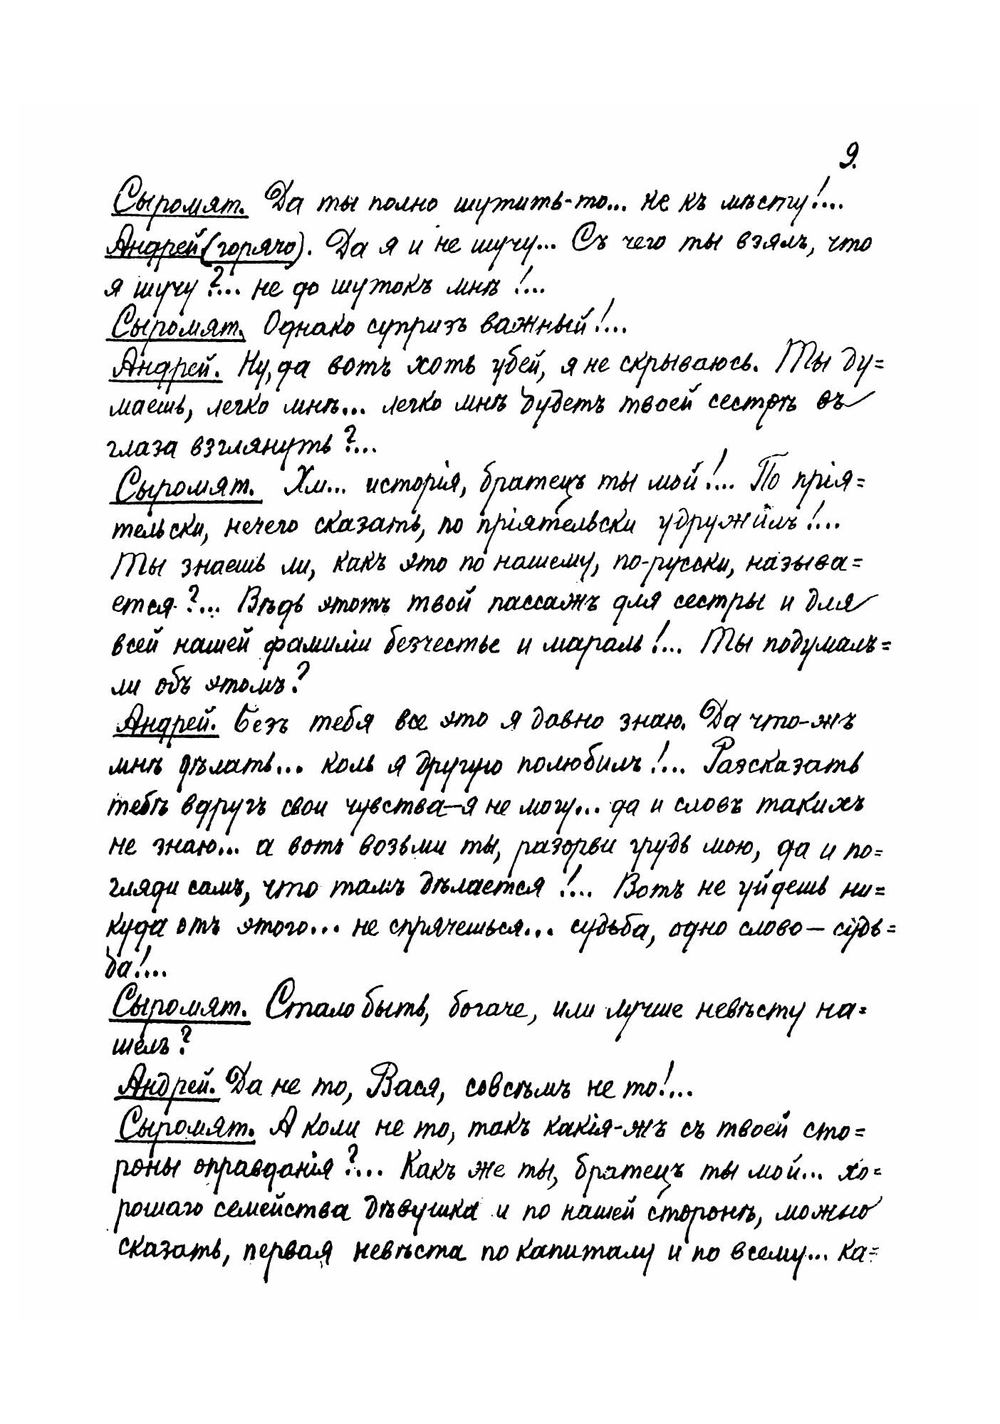 9.
Сыромят. Да ты полно шутить-то... не къ мѣсту!...
Андрей (горячо). Да я и не шучу... Съ чего ты взялъ, что
я шучу?... не до шутокъ мнѣ!...
Сыромят. Однако супризъ важный!...
Андрей. Ну, да вотъ хоть убей, я не скрываюсь. Ты ду=
маешь, легко мнѣ... легко мнѣ будетъ твоей сестрѣ въ
глаза взглянуть?...
Сыромят. Хм... исторія, братецъ ты мой!... По прія=
тельски, нечего сказать, по пріятельски удружилъ!...
Ты знаешь ли, какъ это по нашему, по-русски, называ=
ется?... Вѣдь этотъ твой пассажъ для сестры и для
всей нашей фамиліи безчестье и мараль!... Ты подумалъ=
ли объ этомъ?
Андрей. Безъ тебя все это я давно знаю. Да что-жъ
мнѣ дѣлать... коль я другую полюбилъ!... Разсказать
тебѣ вдругъ свои чувства—я не могу... да и словъ такихъ
не знаю... а вотъ возьми ты, разорви грудь мою, да и по=
гляди самъ, что тамъ дѣлается!... Вотъ не уйдешь ни=
куда отъ этого... не спрячешься... судьба, одно слово — судь=
ба!...
Сыромят. Стало быть, богаче, или лучше невѣсту на=
шелъ?
Андрей. Да не то, Вася, совсѣмъ не то!...
Сыромят. А коли не то, такъ какія-жъ съ твоей сто=
роны оправданія?... Какъ же ты, братецъ ты мой... хо=
рошаго семейства дѣвушка и по нашей сторонѣ, можно
сказать, первая невѣста по капиталу и по всему... ка=